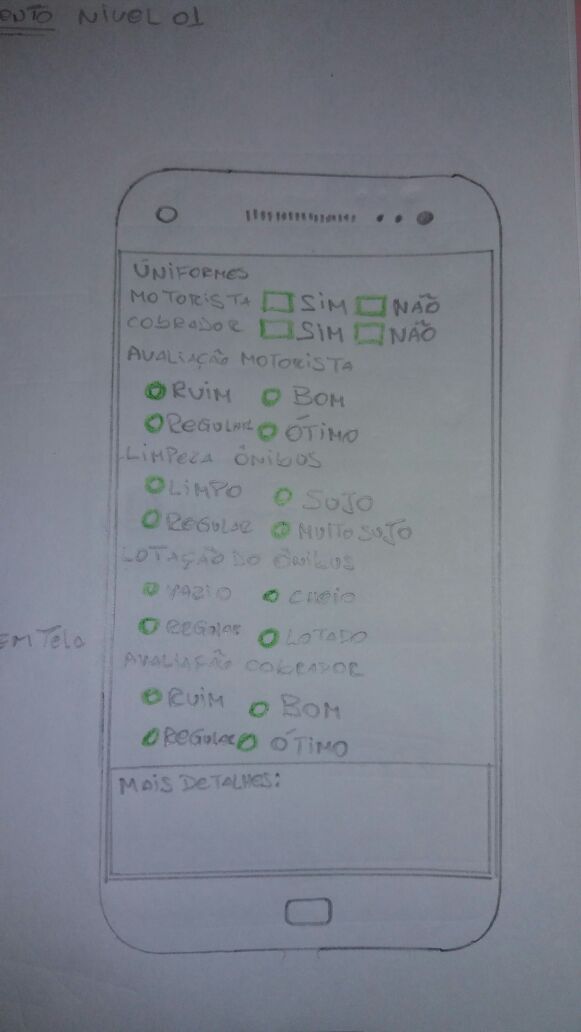 ENTO NIVEL 01
ÚNIFORMES
MOTORISTA SIM NÃO
COBRADOR SIM NÃO
AVALIAÇÃO MOTORISTA
RUIM BOM
REGULAR ÓTIMO
LIMPEZA ÔNIBUS
LIMPO SUJO
REGULAR MUITO SUJO
LOTAÇÃO DO ÔNIBUS
VAZIO CHEIO
REGULAR LOTADO
EM TELA
AVALIAÇÃO COBRADOR
RUIM BOM
REGULAR ÓTIMO
MAIS DETALHES: